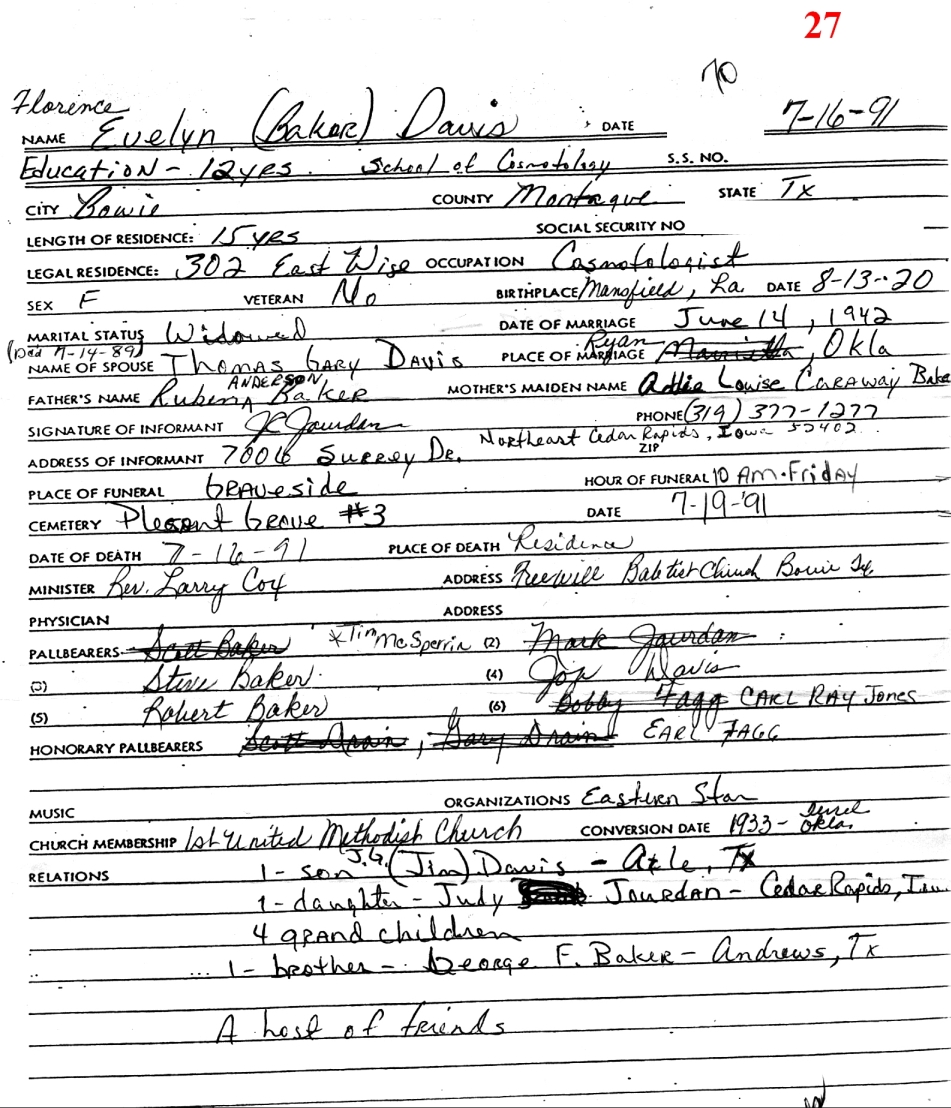 27
70
Florence
NAME Evelyn (Baker) Davis DATE 7-16-91
Education - 12 yrs. School of Cosmotology S.S. NO.
CITY Bowie COUNTY Montague STATE Tx
LENGTH OF RESIDENCE: 15 yrs SOCIAL SECURITY NO —
LEGAL RESIDENCE: 302 East Wise OCCUPATION Cosmotologist
SEX F VETERAN No BIRTHPLACE Mansfield, La. DATE 8-13-20
MARITAL STATUS Widowed DATE OF MARRIAGE June 14, 1942
(Dec'd 7-14-89) Ryan
NAME OF SPOUSE Thomas Gary Davis PLACE OF MARRIAGE Marietta, Okla
ANDERSON
FATHER'S NAME Ruben Baker MOTHER'S MAIDEN NAME Addie Louise Caraway Bake
SIGNATURE OF INFORMANT JC Jourdan PHONE (319) 377-1277
Northeast Cedar Rapids, Iowa 52402
ADDRESS OF INFORMANT 7006 Surrey Dr. ZIP
PLACE OF FUNERAL Graveside HOUR OF FUNERAL 10 Am. Friday
CEMETERY Pleasant Grove #3 DATE 7-19-'91
DATE OF DEATH 7-16-91 PLACE OF DEATH Residence
MINISTER Rev. Larry Cox ADDRESS Freewill Babtist Church Bowie Tx.
PHYSICIAN ADDRESS
PALLBEARERS Scott Baker *Tim McSperrin (2) Mark Jourdan
(3) Steve Baker (4) Jon Davis
(5) Robert Baker (6) Bobby Fagg CARL RAY Jones
HONORARY PALLBEARERS Scott Drain, Gary Drain EARL FAGG
MUSIC ORGANIZATIONS Eastern Star
CHURCH MEMBERSHIP 1st United Methodist Church CONVERSION DATE 1933 - Okla.
RELATIONS 1 - son J.G. (Jim) Davis - Azle, Tx
1 - daughter - Judy Jourdan - Cedar Rapids, Iow
4 grand children
1 - brother - George F. Baker - Andrews, Tx
A host of friends